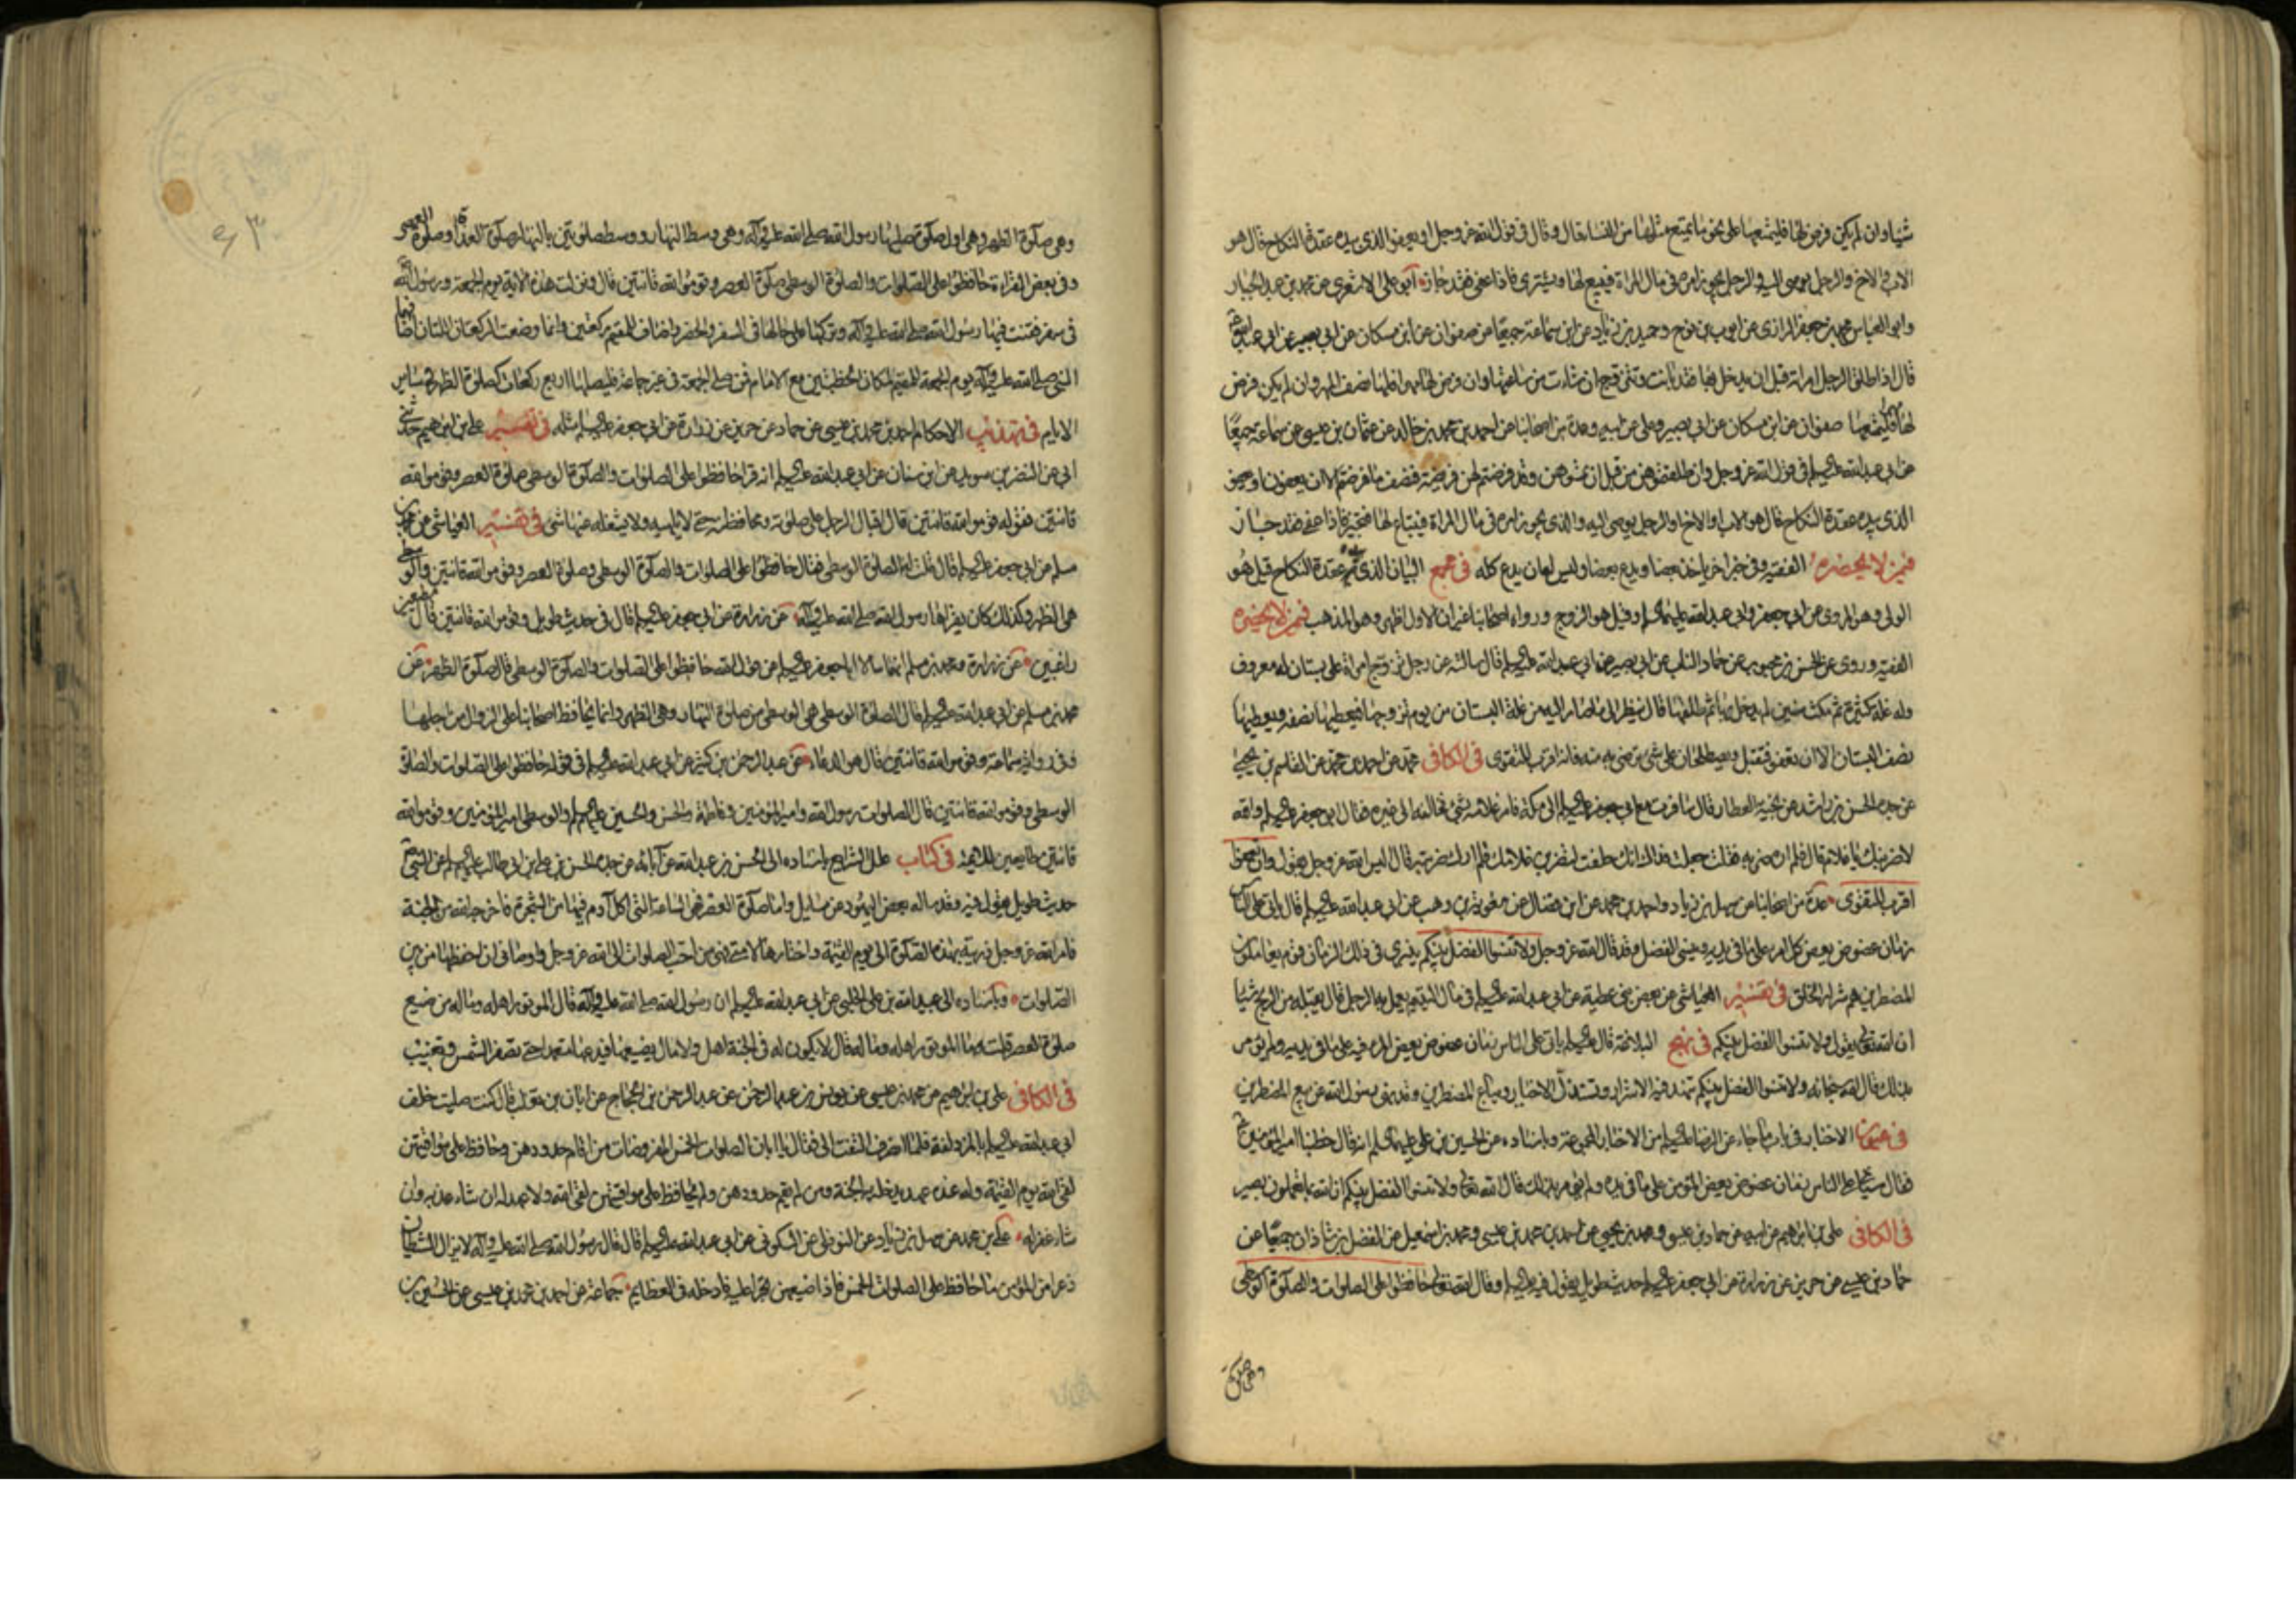 شيئا وان لم يكن فرض لها فليمتعها على نحو ما يتمتع مثلها من النساء قال وقال فى قول الله عز وجل او يعفو الذى بيده عقدة النكاح قال هو
الاب والاخ والرجل يوصى اليه والرجل يجوز امره فى مال المراة فيبيع لها ويشترى فاذا عفى فقد جاز ابو على الاشعرى عن محمد بن عبد الجبار
وابو العباس محمد بن جعفر الرازى عن ايوب بن نوح وحميد بن زياد عن ابن سماعة جميعا عن صفوان عن ابن مسكان عن ابى بصير عن ابى عبد الله
قال اذا طلق الرجل امراته قبل ان يدخل بها فقد بانت وتتزوج ان شاءت من ساعتها وان فرض لها مهرا فلها نصف المهر وان لم يكن فرض
لها مهرا فليمتعها صفوان عن ابن مسكان عن ابى بصير وعلى عن ابيه وعدة من اصحابنا عن احمد بن محمد بن خالد عن عثمان بن عيسى عن سماعة جميعا
عن ابى عبد الله عليه السلم فى قول الله عز وجل وان طلقتموهن من قبل ان تمسوهن وقد فرضتم لهن فريضة فنصف ما فرضتم الا ان يعفون او يعفو
الذى بيده عقدة النكاح قال هو الاب او الاخ او الرجل يوصى اليه والذى يجوز امره فى مال المراة فيبتاع لها فتجيز فاذا عفى فقد جاز
فيمن لا يحضره الفقيه وفى خبر اخر ياخذ بعضا ويدع بعضا وليس له ان يدع كله فى مجمع البيان الذى بيده عقدة النكاح قيل هو
الولى وهو المروى عن ابى جعفر وابى عبد الله عليهما السلم وقيل هو الزوج ورواه اصحابنا غير ان الاول اظهر وهو المذهب فيمن لا يحضره
الفقيه وروى عن الحسن بن محبوب عن حماد الناب عن ابى بصير عن ابى عبد الله عليه السلم قال سالته عن رجل تزوج امراة على بستان له معروف
وله غلة كثيرة ثم مكث سنين لم يدخل بها ثم طلقها قال ينظر الى ما صار اليه من غلة البستان من يوم تزوجها فيعطيها نصفه ويعطيها
نصف البستان الا ان تعفو فتقبل ويصطلحان على شئ ترضى به منه فانه اقرب للتقوى فى الكافى محمد عن احمد بن محمد عن القاسم بن يحيى
عن جده الحسن بن راشد عن نجية العطار قال سافرت مع ابى جعفر عليه السلم الى مكة فامر غلامه بشئ فخالفه الى غيره فقال ابو جعفر عليه السلم والله
لاضربنك يا غلام قال فلم اره ضربه فقلت جعلت فداك انك حلفت لتضربن غلامك فلم ارك ضربته قال اليس الله عز وجل يقول وان تعفوا
اقرب للتقوى عدة من اصحابنا عن سهل بن زياد واحمد بن محمد عن ابن فضال عن معوية بن وهب عن ابى عبد الله عليه السلم قال ياتى على الناس
زمان عضوض يعض كل امرء على ما فى يديه وينسى الفضل وقد قال الله عز وجل ولا تنسوا الفضل بينكم ينبرى فى ذلك الزمان قوم يعاملون
المضطرين هم شرار الخلق فى تفسير العياشى عن بعض بنى عطية عن ابى عبد الله عليه السلم فى مال اليتيم يعمل به الرجل قال ينيله من الربح شيئا
ان الله تعالى يقول ولا تنسوا الفضل بينكم فى نهج البلاغة قال عليه السلم ياتى على الناس زمان عضوض يعض الموسر فيه على ما فى يديه ولم يؤمر
بذلك قال الله سبحانه ولا تنسوا الفضل بينكم تنهد فيه الاشرار وتستذل الاخيار ويبايع المضطرين وقد نهى رسول الله عن بيع المضطرين
فى عيون الاخبار فى باب ما جاء عن الرضا عليه السلم من الاخبار المجموعة وباسناده عن الحسين بن على عليهما السلم انه قال خطبنا امير المؤمنين
فقال سياتى على الناس زمان عضوض يعض المؤمن على ما فى يده ولم يؤمر بذلك قال الله تعالى ولا تنسوا الفضل بينكم ان الله بما تعملون بصير
فى الكافى على بن ابراهيم عن ابيه عن حماد بن عيسى ومحمد بن يحيى عن احمد بن محمد بن عيسى ومحمد بن اسمعيل عن الفضل بن شاذان جميعا عن
حماد بن عيسى عن حريز عن زرارة عن ابى جعفر عليه السلم حديث طويل يقول فيه عليه السلم وقال الله تعالى حافظوا على الصلوات والصلوة الوسطى
وهى صلوة
٤٣
وهى صلوة الظهر وهى اول صلوة صلاها رسول الله صلى الله عليه وآله وهى وسط النهار ووسط صلوتين بالنهار صلوة الغداة وصلوة العصر
وفى بعض القراءة حافظوا على الصلوات والصلوة الوسطى صلوة العصر وقوموا لله قانتين قال ونزلت هذه الاية يوم الجمعة ورسول الله
فى سفر فقنت فيها رسول الله صلى الله عليه وآله وتركها على حالها فى السفر والحضر واضاف للمقيم ركعتين وانما وضعت الركعتان اللتان اضافهما
النبى صلى الله عليه وآله يوم الجمعة للمقيم لمكان الخطبتين مع الامام فمن صلى الجمعة فى غير جماعة فليصلها اربع ركعات كصلوة الظهر فى ساير
الايام فى تهذيب الاحكام احمد بن محمد بن عيسى عن حماد عن حريز عن زرارة عن ابى جعفر عليه السلم مثله فى تفسير على بن ابراهيم حدثنى
ابى عن النضر بن سويد عن ابن سنان عن ابى عبد الله عليه السلم انه قرا حافظوا على الصلوات والصلوة الوسطى صلوة العصر وقوموا لله
قانتين فقوله قوموا لله قانتين قال اقبال الرجل على صلوته ومحافظته حتى لا يلهيه ولا يشغله عنها شئ فى تفسير العياشى عن محمد بن
مسلم عن ابى جعفر عليه السلم قال قلت له الصلوة الوسطى فقال حافظوا على الصلوات والصلوة الوسطى وصلوة العصر وقوموا لله قانتين والوسطى
هى الظهر وكذلك كان يقراها رسول الله صلى الله عليه وآله عن زرارة عن ابى جعفر عليه السلم قال فى حديث طويل وقوموا لله قانتين قال مطيعين
راغبين عن زرارة ومحمد بن مسلم انهما سالا ابا جعفر عليه السلم عن قول الله حافظوا على الصلوات والصلوة الوسطى قال صلوة الظهر عن
محمد بن مسلم عن ابى عبد الله عليه السلم قال الصلوة الوسطى هى الوسطى من صلوة النهار وهى الظهر وانما يحافظ اصحابنا على الزوال من اجلها
وفى رواية سماعة وقوموا لله قانتين قال هو الدعاء عن عبد الرحمن بن كثير عن ابى عبد الله عليه السلم فى قوله حافظوا على الصلوات والصلوة
الوسطى وقوموا لله قانتين قال الصلوات رسول الله وامير المؤمنين وفاطمة والحسن والحسين عليهم السلم والوسطى امير المؤمنين وقوموا لله
قانتين طايعين للائمة فى كتاب علل الشرايع باسناده الى الحسن بن عبد الله عن آبائه عن جده الحسن بن على بن ابى طالب عليه السلم عن النبى
حديث طويل يقول فيه وقد ساله بعض اليهود عن مسايل واما صلوة العصر فهى الساعة التى اكل آدم فيها من الشجرة فاخرجه الله من الجنة
فامر الله عز وجل ذريته بهذه الصلوة الى يوم القيمة واختارها لامتى فهى من احب الصلوات الى الله عز وجل واوصانى ان احفظها من بين
الصلوات وباسناده الى عبيد الله بن على الحلبى عن ابى عبد الله عليه السلم ان رسول الله صلى الله عليه وآله قال الموتور اهله وماله من ضيع
صلوة العصر قلت ما الموتور اهله وماله قال لا يكون له فى الجنة اهل ولا مال يضيعها فيدعها متعمدا حتى تصفر الشمس وتغيب
فى الكافى على بن ابراهيم عن محمد بن عيسى عن يونس بن عبد الرحمن عن عبد الرحمن بن الحجاج عن ابان بن تغلب قال كنت صليت خلف
ابى عبد الله عليه السلم بالمزدلفة فلما انصرف التفت الى فقال يا ابان الصلوات الخمس المفروضات من اقام حدودهن وحافظ على مواقيتهن
لقى الله يوم القيمة وله عنده عهد يدخله به الجنة ومن لم يقم حدودهن ولم يحافظ على مواقيتهن لقى الله ولا عهد له ان شاء عذبه وان
شاء غفر له على بن محمد عن سهل بن زياد عن النوفلى عن السكونى عن ابى عبد الله عليه السلم قال قال رسول الله صلى الله عليه وآله لا يزال الشيطان
ذعرا من المؤمن ما حافظ على الصلوات الخمس فاذا ضيعهن تجرا عليه فادخله فى العظايم جماعة عن احمد بن محمد بن عيسى عن الحسين بن